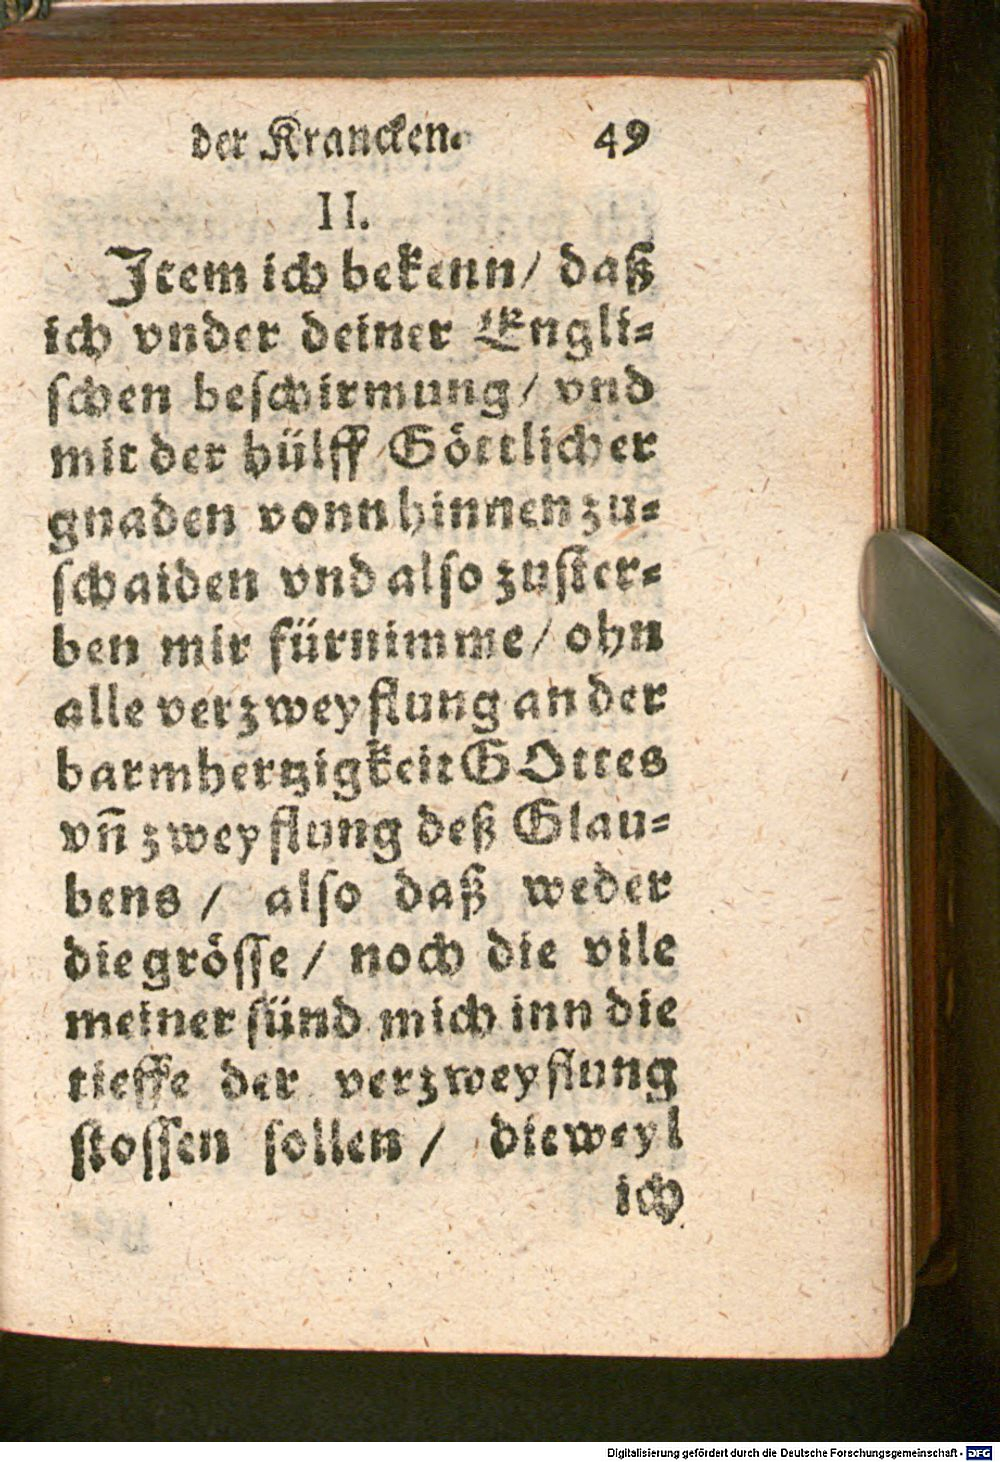 der Krancken. 49
II.
Item ich bekenn/ daß
ich vnder deiner Engli⸗
ſchen beſchirmung/ vnd
mit der hülff Göttlicher
gnaden vonn hinnen zu⸗
ſchaiden vnd alſo zuſter⸗
ben mir fürnimme/ ohn
alle verzweyflung an der
barmhertzigkeit GOttes
vñ zweyflung deß Glau⸗
bens / alſo daß weder
die gröſſe/ noch die vile
meiner ſünd mich inn die
tieffe der verzweyflung
ſtoſſen ſollen/ dieweyl
ich
Digitalisierung gefördert durch die Deutsche Forschungsgemeinschaft - DFG